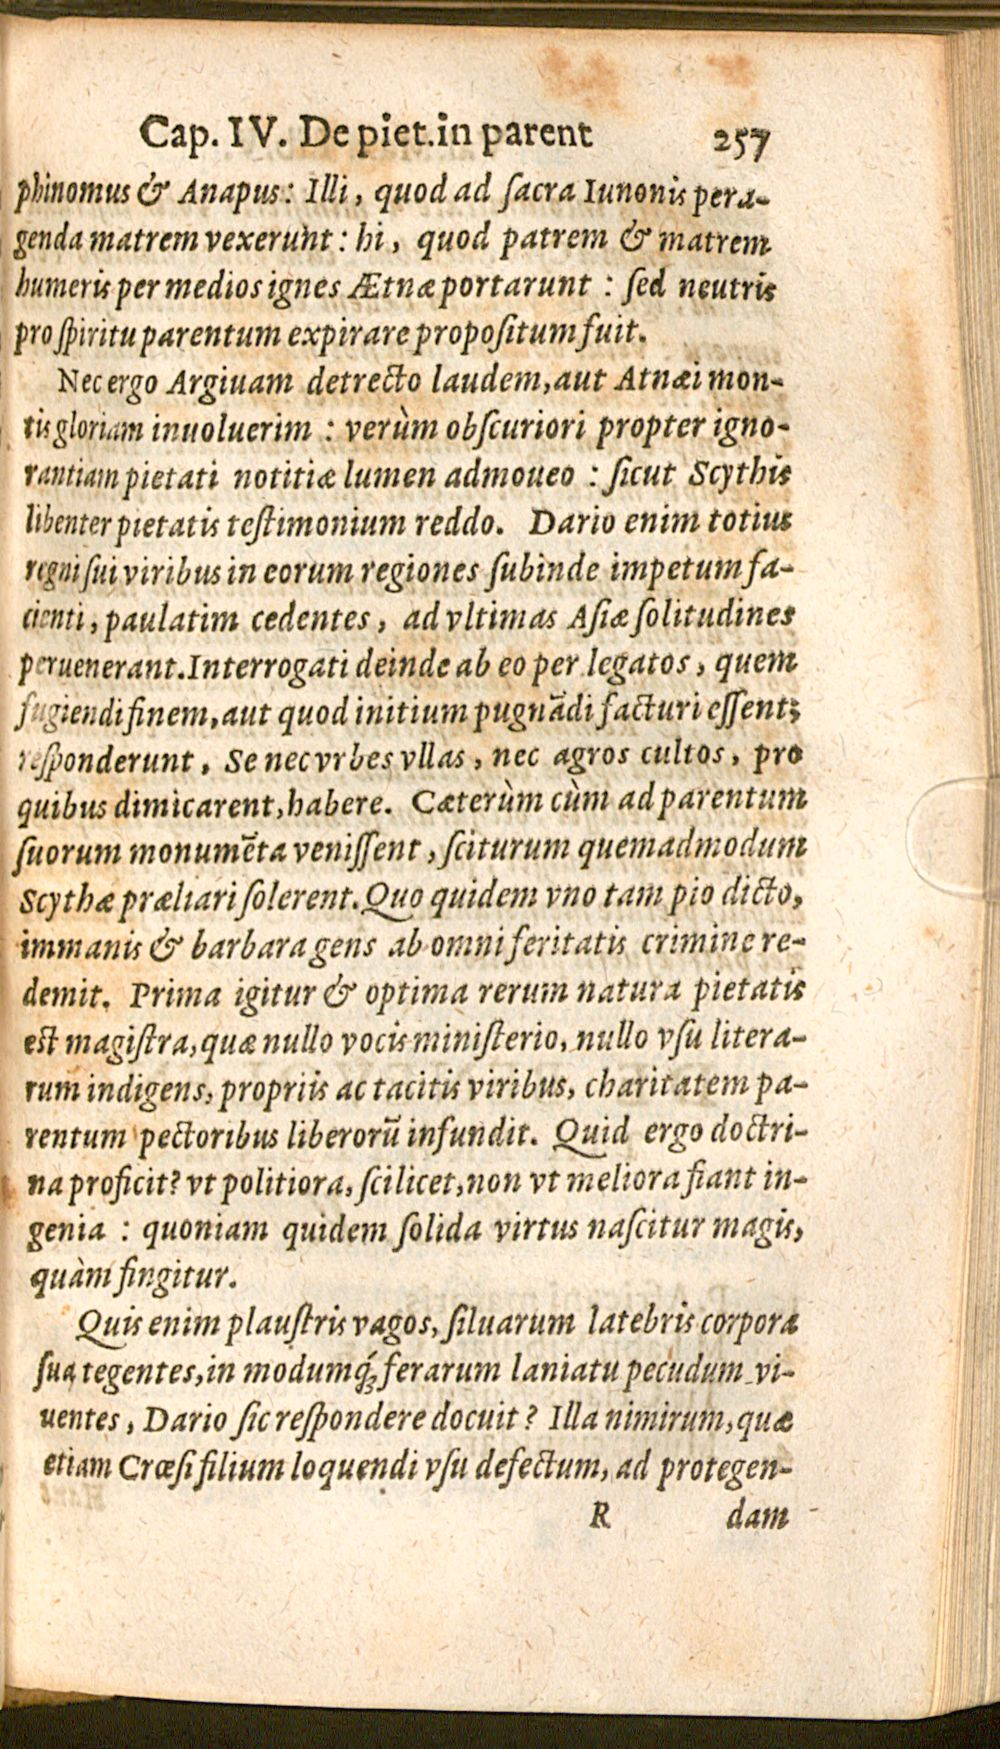 Cap. IV. De piet.in parent 257
phinomus & Anapus: Illi, quod ad ſacra Iunonis pera-
genda matrem vexerunt : hi, quod patrem & matrem
humeris per medios ignes Ætnæ portarunt : ſed neutris
pro ſpiritu parentum expirare propoſitum fuit.
Nec ergo Argiuam detrecto laudem, aut Atnæi mon-
tis gloriam inuoluerim : verùm obſcuriori propter igno-
rantiam pietati notitiæ lumen admoueo : ſicut Scythis
libenter pietatis teſtimonium reddo. Dario enim totius
regni ſui viribus in eorum regiones ſubinde impetum fa-
cienti, paulatim cedentes, ad vltimas Aſiæ ſolitudines
peruenerant. Interrogati deinde ab eo per legatos, quem
fugiendi finem, aut quod initium pugnãdi facturi eſſent;
reſponderunt, Se nec vrbes vllas, nec agros cultos, pro
quibus dimicarent, habere. Cæterùm cùm ad parentum
ſuorum monumẽta veniſſent, ſciturum quemadmodum
Scythæ præliari ſolerent. Quo quidem vno tam pio dicto,
immanis & barbara gens ab omni feritatis crimine re-
demit. Prima igitur & optima rerum natura pietatis
eſt magiſtra, quæ nullo vocis miniſterio, nullo vſu litera-
rum indigens, propriis ac tacitis viribus, charitatem pa-
rentum pectoribus liberorũ infundit. Quid ergo doctri-
na proficit? vt politiora, ſcilicet, non vt meliora fiant in-
genia : quoniam quidem ſolida virtus naſcitur magis,
quàm fingitur.
Quis enim plauſtris vagos, ſiluarum latebris corpora
ſua tegentes, in modumq́; ferarum laniatu pecudum vi-
uentes, Dario ſic reſpondere docuit? Illa nimirum, quæ
etiam Crœſi filium loquendi vſu defectum, ad protegen-
R dam